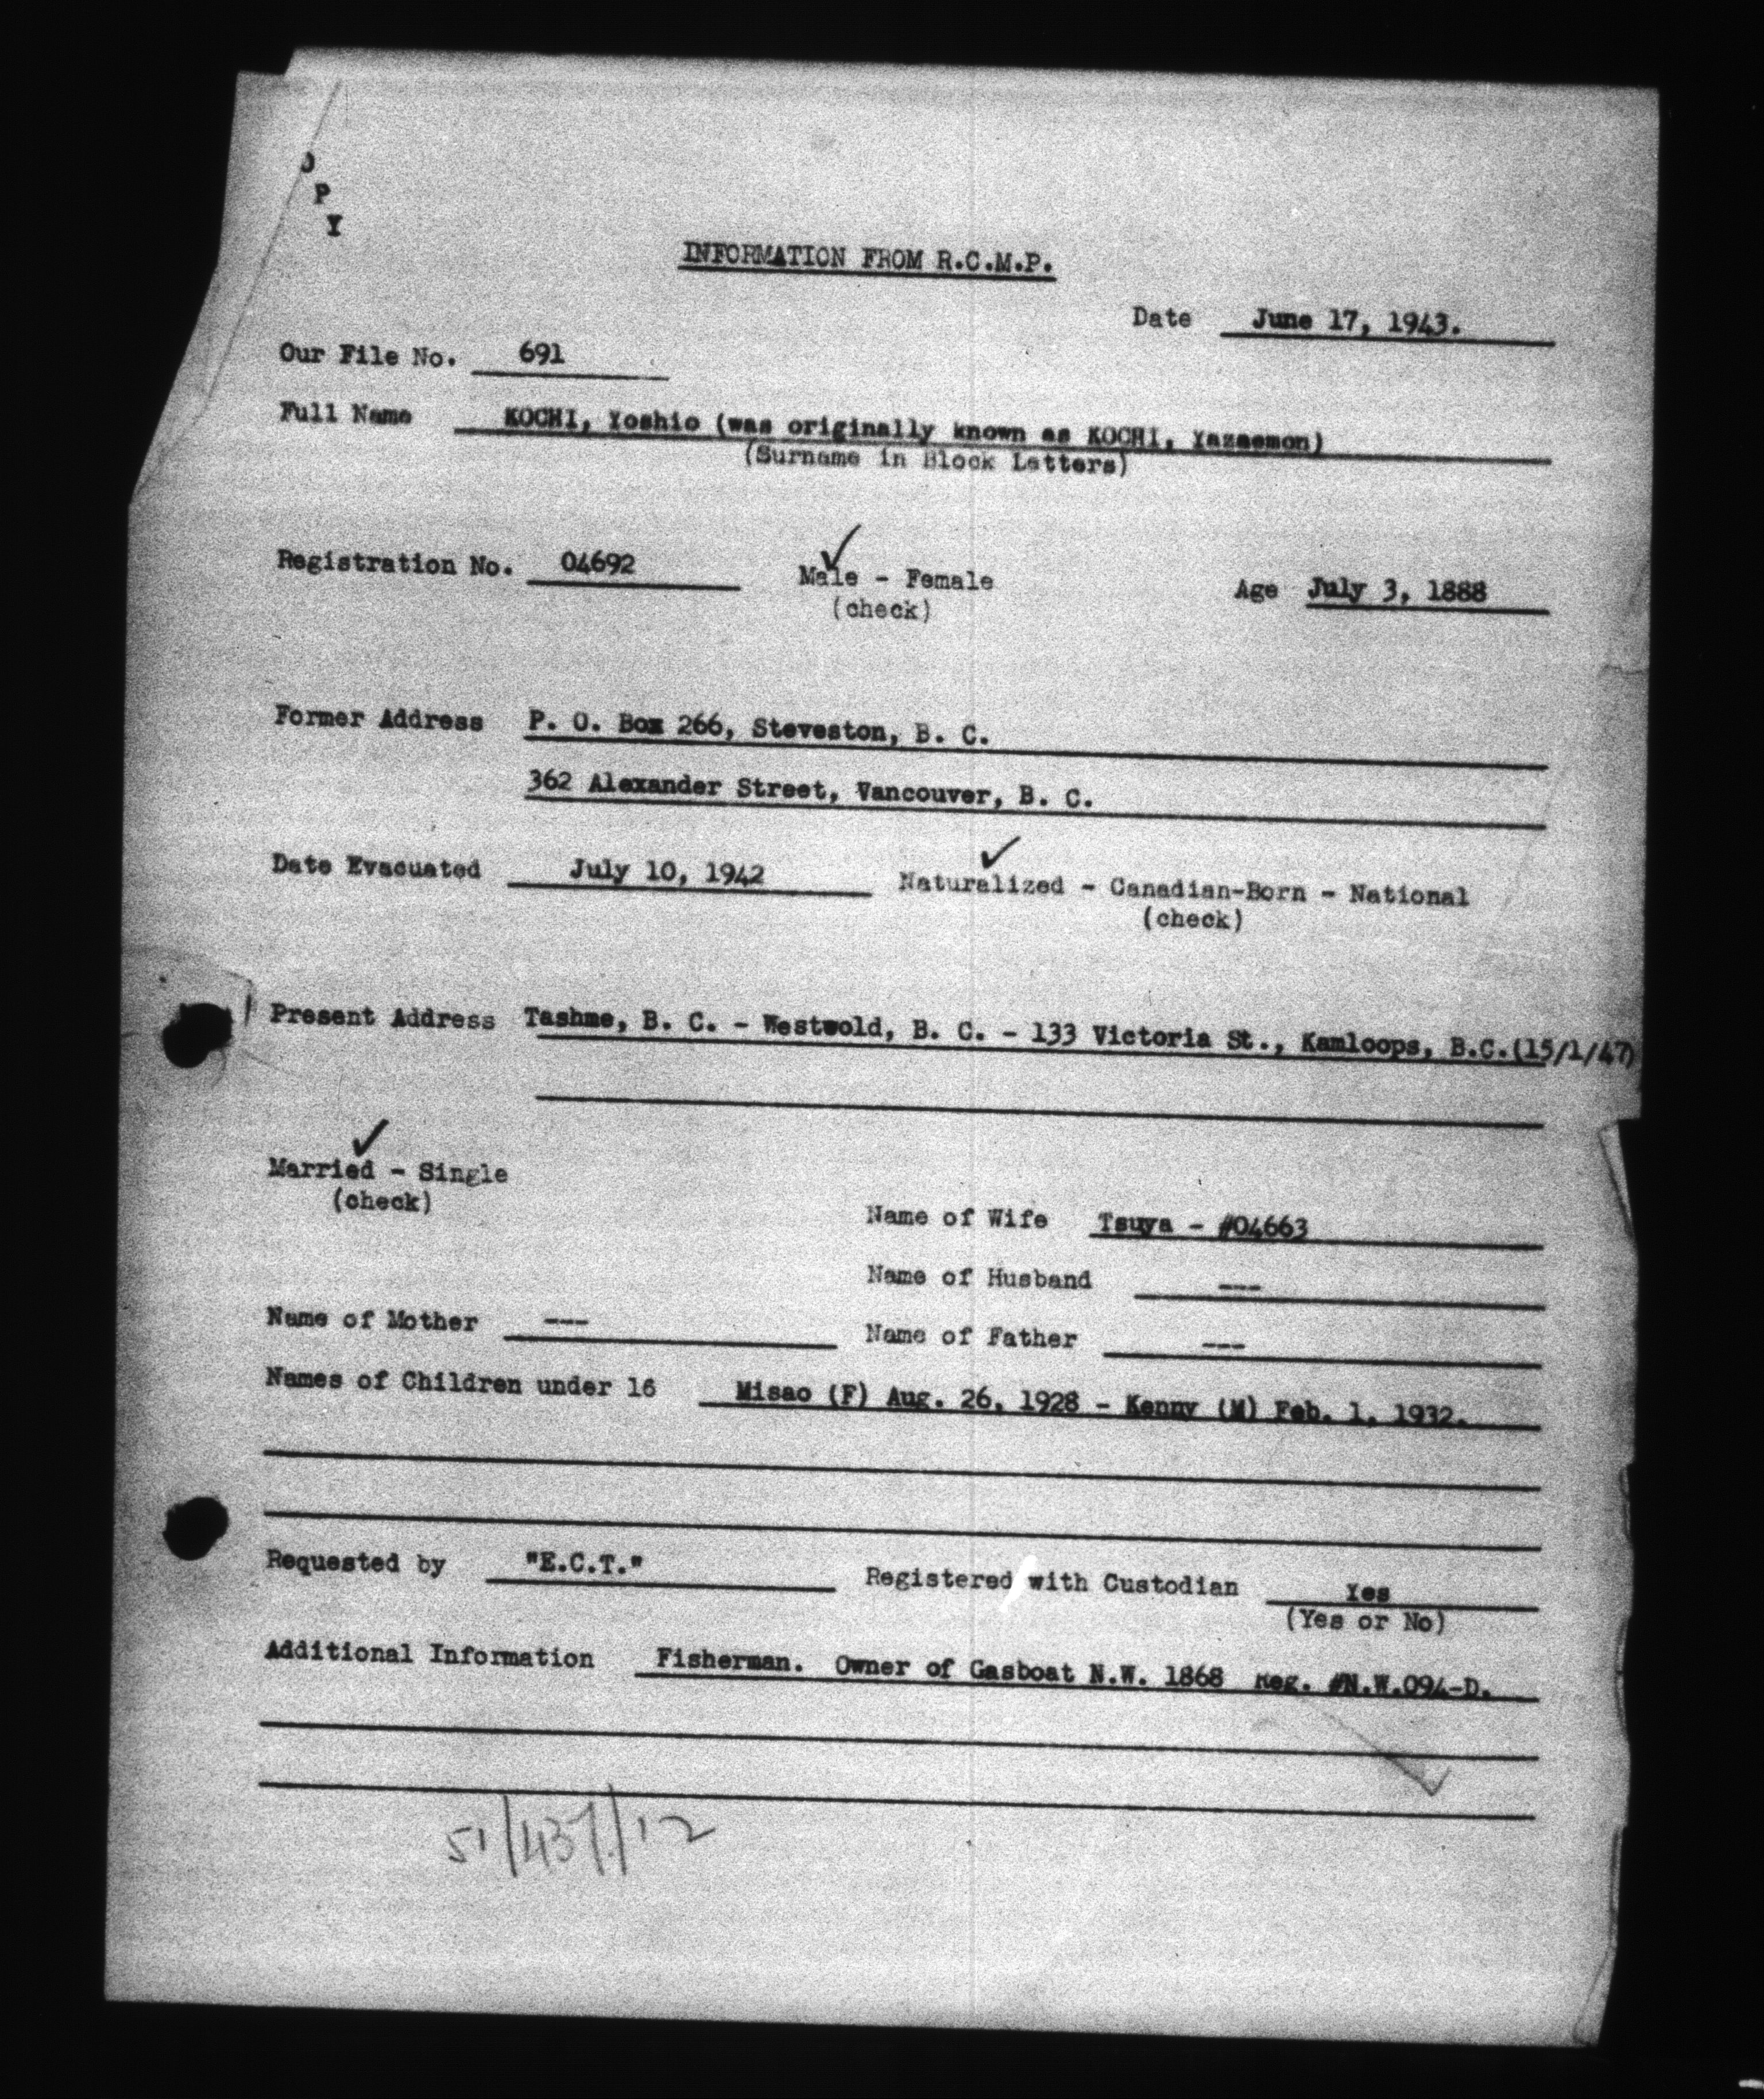 O
P
Y
INFORMATION FROM R.C.M.P.
Date June 17, 1943.
Our File No. 691
Full Name KOCHI, Yoshio (was originally known as KOCHI, Yazaemon)
(Surname in Block Letters)
Registration No. 04692 Male - Female Age July 3, 1888
(check)
Former Address P. O. Box 266, Steveston, B. C.
362 Alexander Street, Vancouver, B. C.
Date Evacuated July 10, 1942 Naturalized - Canadian-Born - National
(check)
Present Address Tashme, B. C. - Westwold, B. C. - 133 Victoria St., Kamloops, B.C.(15/1/47)
Married - Single
(check)
Name of Wife Tsuya - #04663
Name of Husband ---
Name of Mother --- Name of Father ---
Names of Children under 16 Misao (F) Aug. 26, 1928 - Kenny (M) Feb. 1, 1932.
Requested by "E.C.T." Registered with Custodian Yes
(Yes or No)
Additional Information Fisherman. Owner of Gasboat N.W. 1868 Reg. #N.W.094-D.